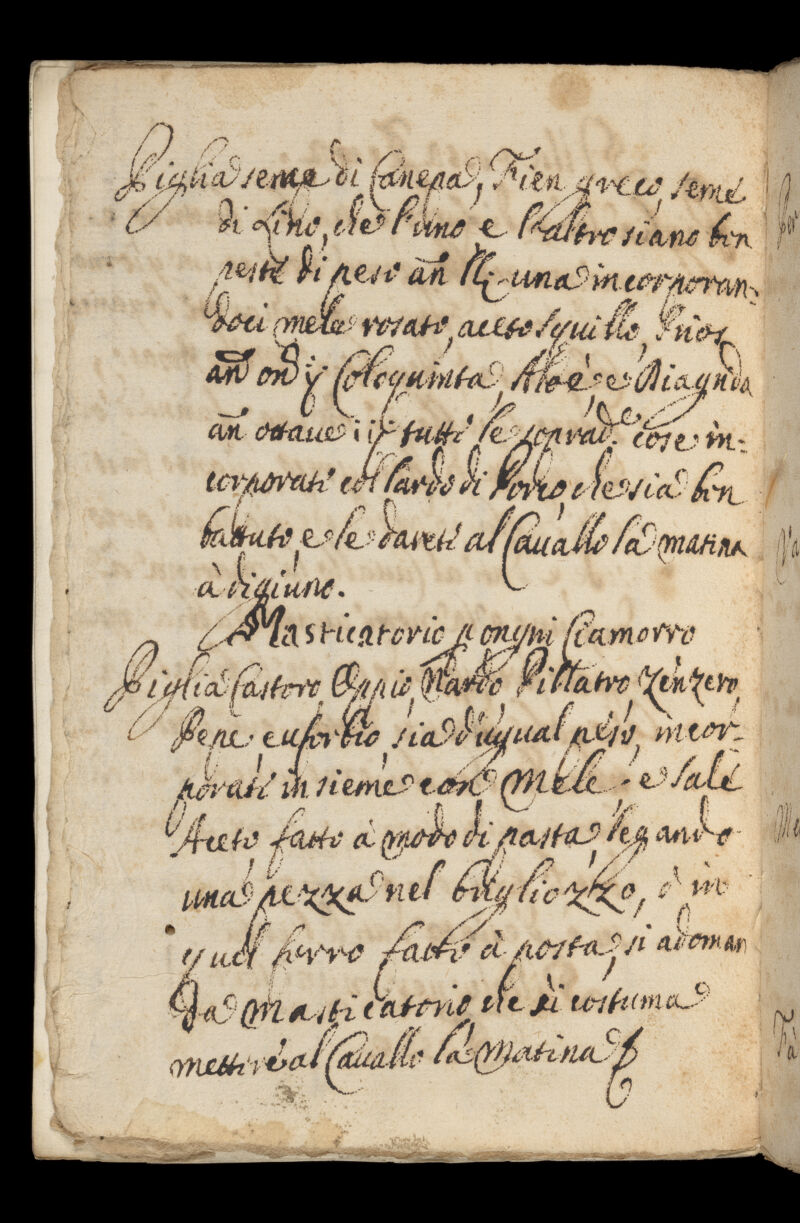 Piglia seme di Canepa, Fien greco, seme
di Lino, che l'uno e l'altro siano ben
peste di peso añ una incorporan=
doci mele rosato, aceto squillo,
añ onð ij Coloquinta, Aloè, e Diagrida
añ ottaue iij tutte le soprad.e cose in=
corporati col lardo di Porco, che sia ben
battuto, e le dareti al Cauallo la matina
à digiuno.
Masticatorio p ongni Ciamorro
Piglia Castoro, Oppio, Nardo Pillatro, Zenzero,
Pepe, euforbio, sia d'ugual peso, incor=
porati insieme con Mele e sale
Aceto fatto à modo di pasta, legando
una pezza nel brigliozzo, ò in
quel ferro fatto à posta, si adoman
da Masticatorio che si costuma
mettere al Cauallo la Matina